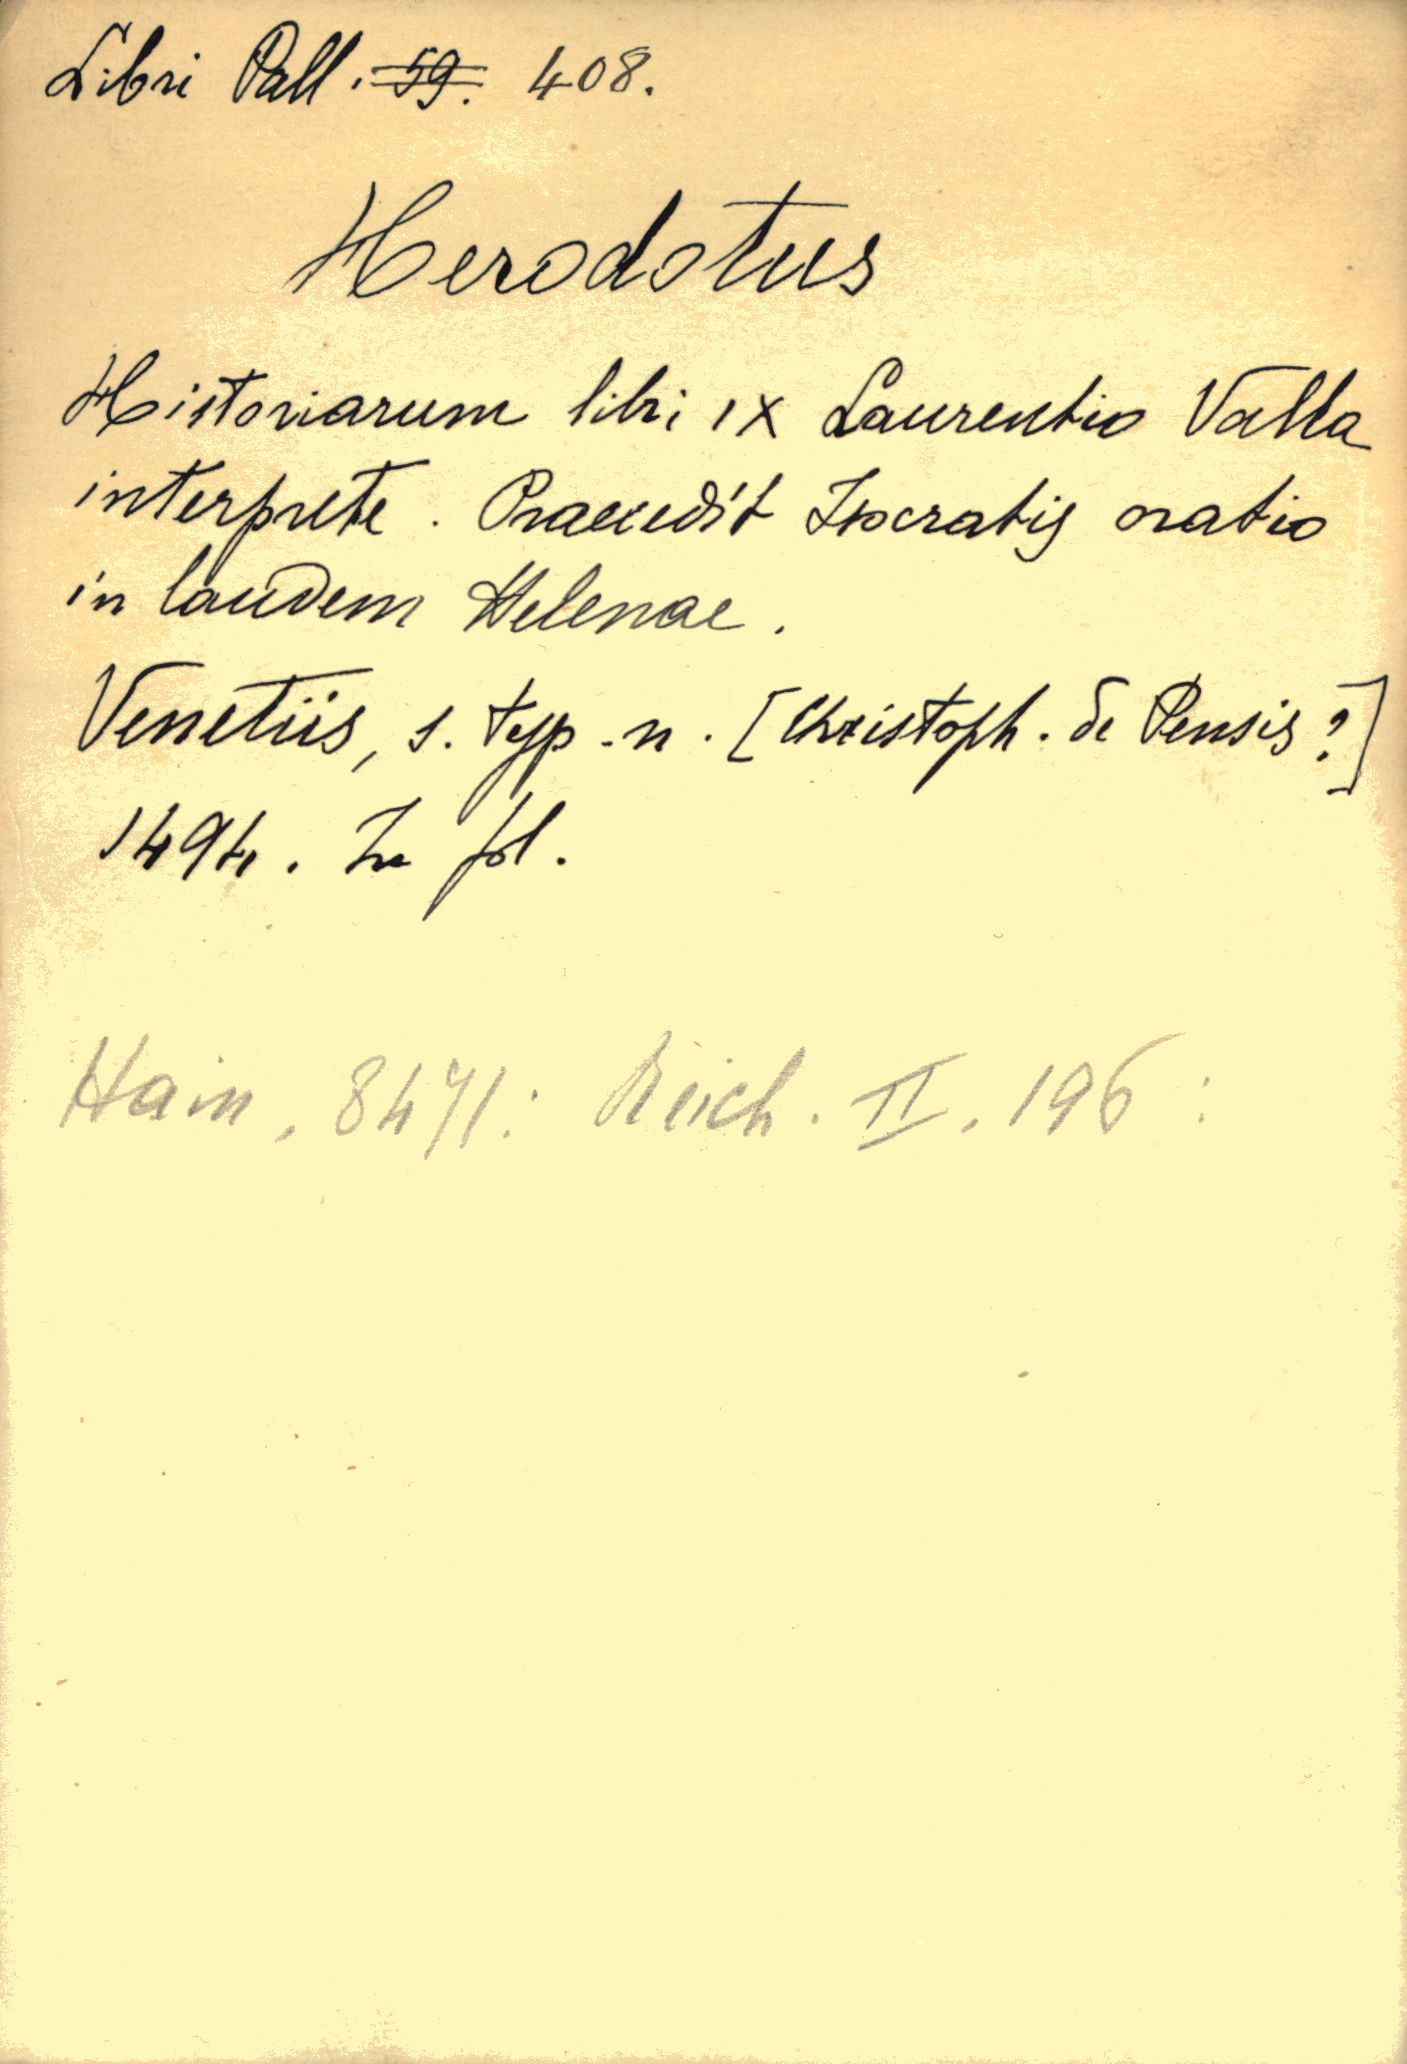 Libri Pall. 59. 408.
Herodotus
Historiarum libri IX Laurentio Valla
interprete. Praecedit Isocratis oratio
in laudem Helenae.
Venetiis, s. typ. n. [Christoph. de Pensis?]
1494. In fol.
Hain, 8471: Reich. II, 196: